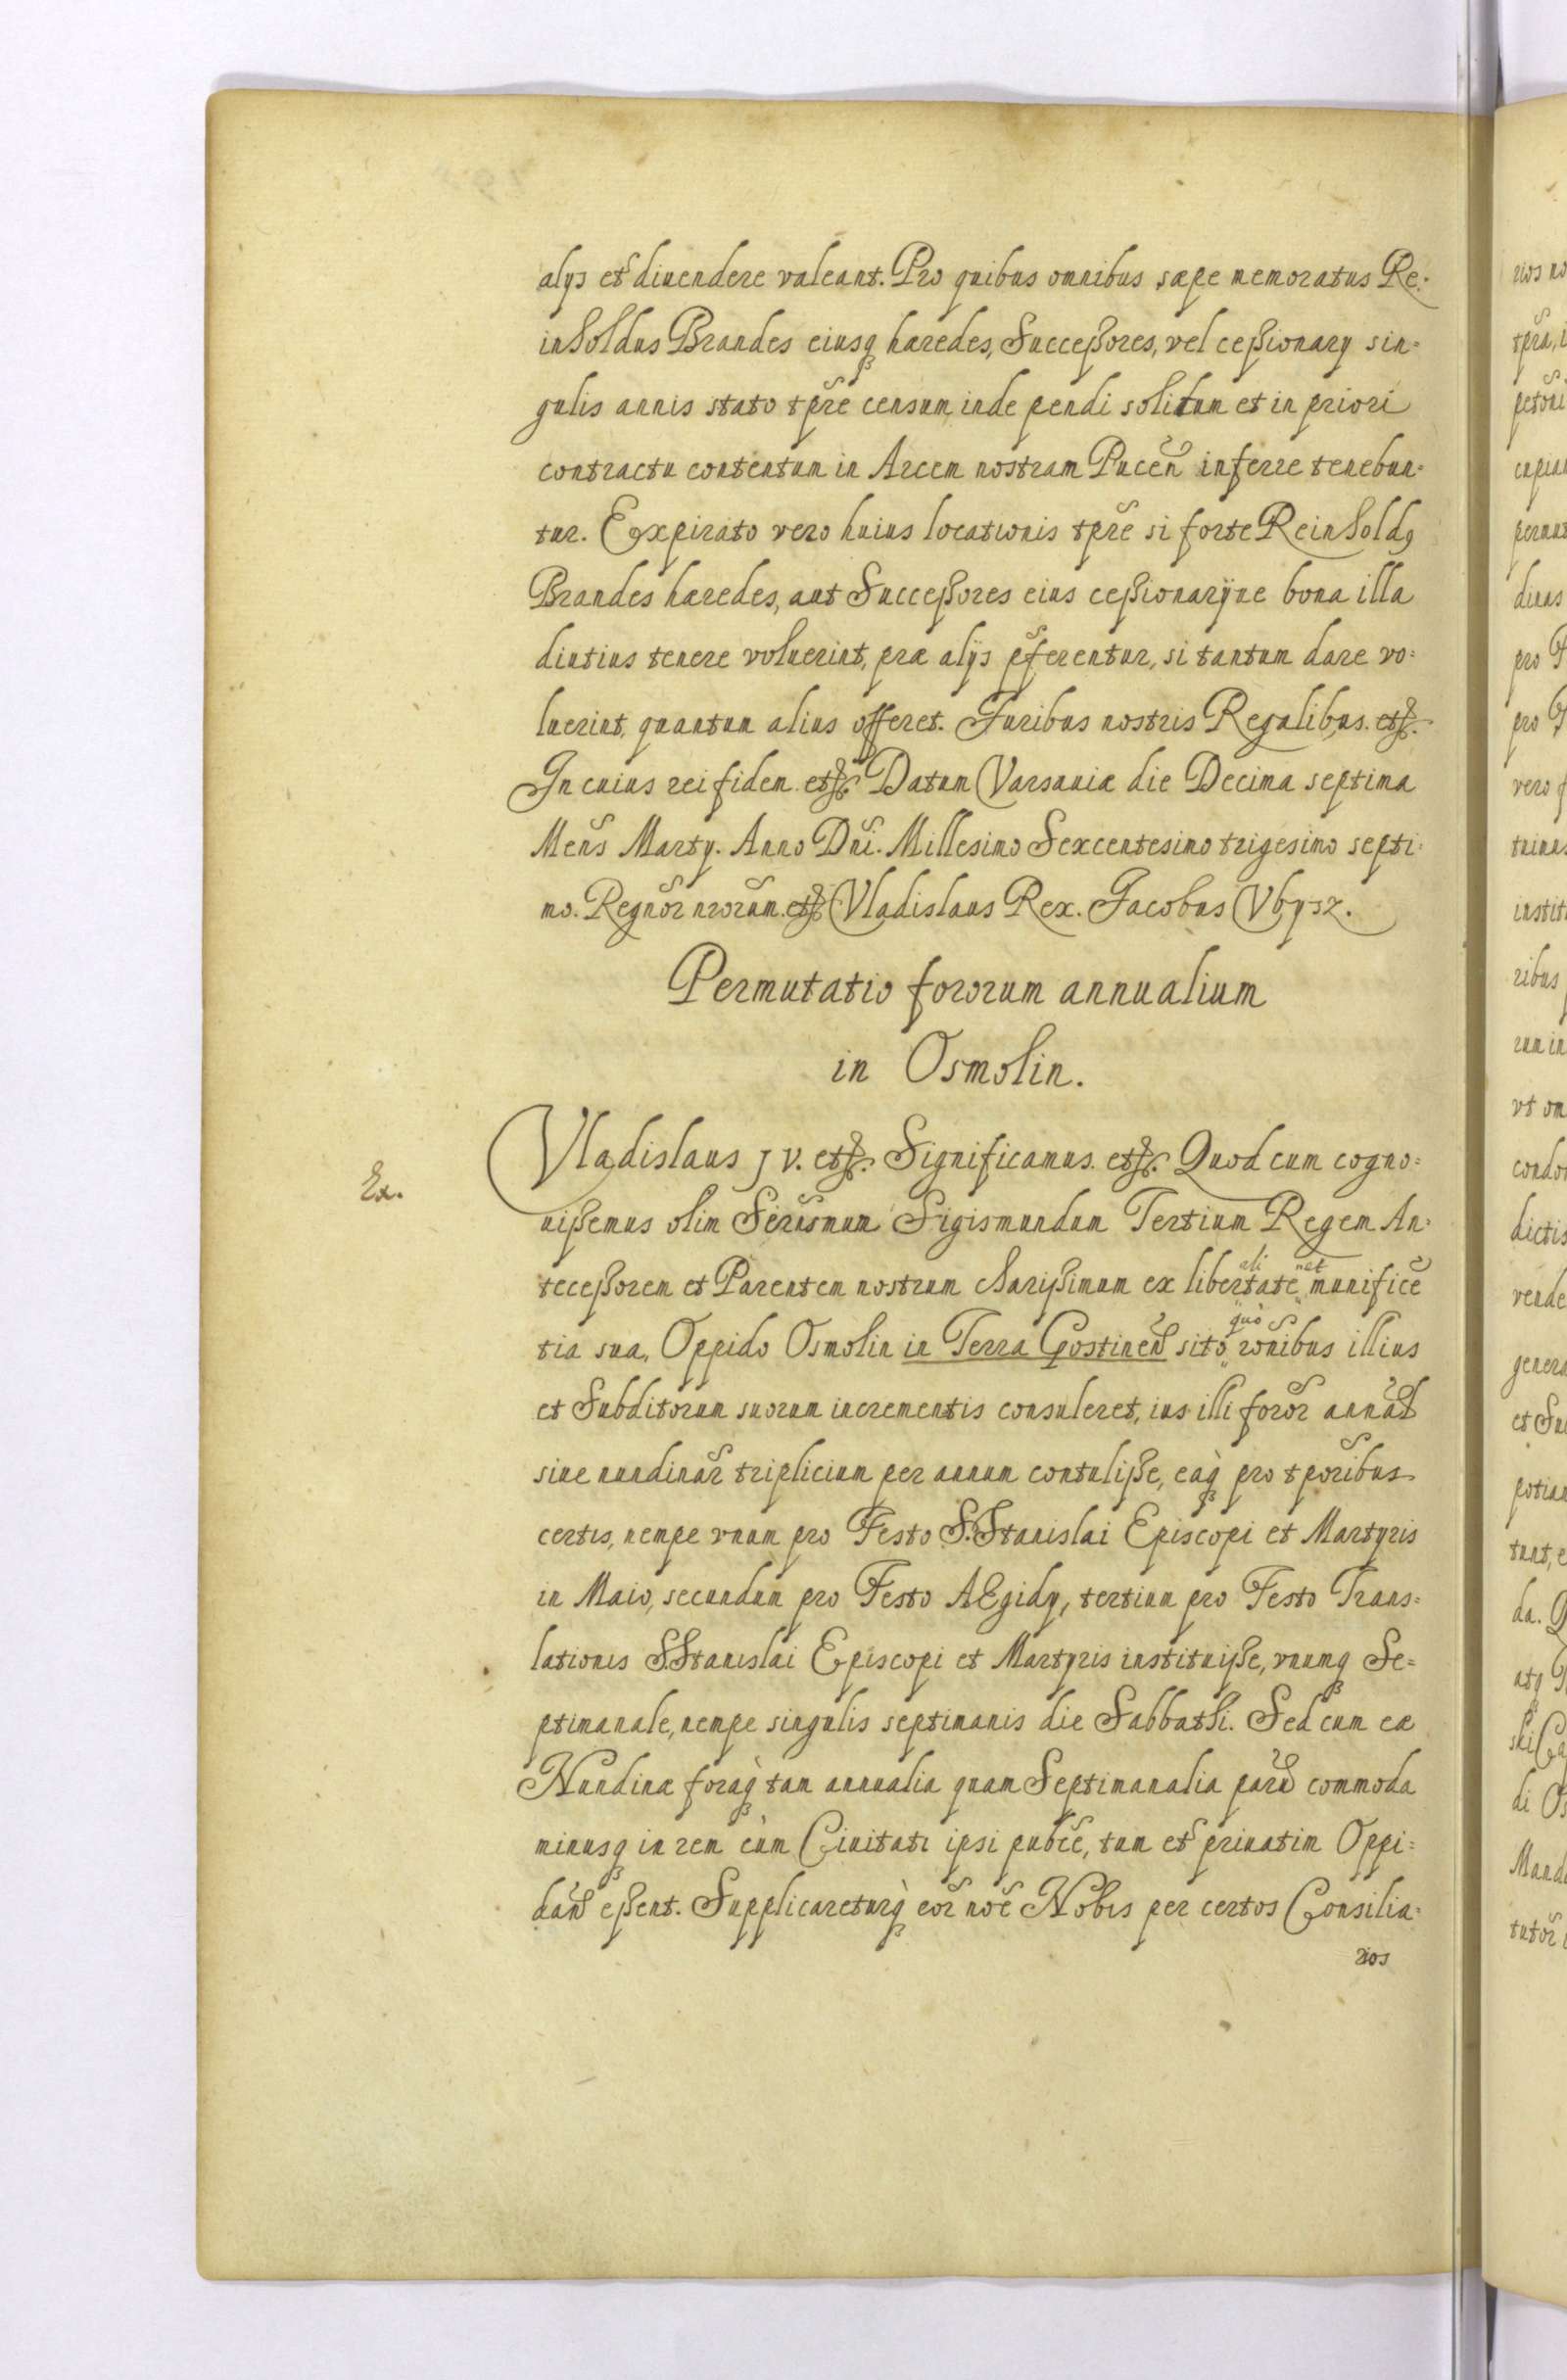 alys et diuendere valeant. Pro quibus omnibus sæpe memoratus Re-
inholdus Brandes eiusq hæredes, Successores, vel cessionary sin=
gulis annis stato tpre censum inde pendi solitum et in priori
contractu contentum in Arcem nostram Pucen inferre tenebun=
tur. Expirato vero huius locationis tpre si forte Reinhold9
Brandes hæredes, aut Successores eius cessionaryue bona illa
diutius tenere voluerint, præ alys pferentur, si tantum dare vo=
luerint, quantum alius offeret. Juribus nostris Regalibus. etc.
In cuius rei fidem etc. Datum Varsauiæ die Decima septima
Mens Marty. Anno Dni. Millesimo Sexcentesimo trigesimo septi=
mo. Regnor nrorum etc Vladislaus Rex. Jacobus Vbysz.
Permutatio fororum annualium
in Osmolin.
Vladislaus JV. etc. Significamus. etc. Quod cum cogno=
Ex.
uissemus olim Serūsmum Sigismundum Tertium Regem An=
tecessorem et Parentem nostrum charissimum ex libertate munifice
ali nat
tia sua, Oppido Osmolin in Terra Gostinen sito ronibus illius
quò
et Subditorum suorum incrementis consuleret, ius illi foror annal
siue nundinar triplicium per annum contulisse, eaq pro tporibus
certis, nempe vnum pro Festo S. Stanislai Episcopi et Martyris
in Maio, secundum pro Festo AEgidy, tertium pro Festo Trans=
lationis S. Stanislai Episcopi et Martyris instituisse, vnumq Se=
ptimanale, nempe singulis septimanis die Sabbathi. Sed cum eæ
Nundinæ foraq tam annualia quam Septimanalia paru commoda
minusq in rem cùm Ciuitati ipsi pubce, tum et priuatim Oppi=
dan essent. Supplicareturq eor noe Nobis per certos Consilia=
rios